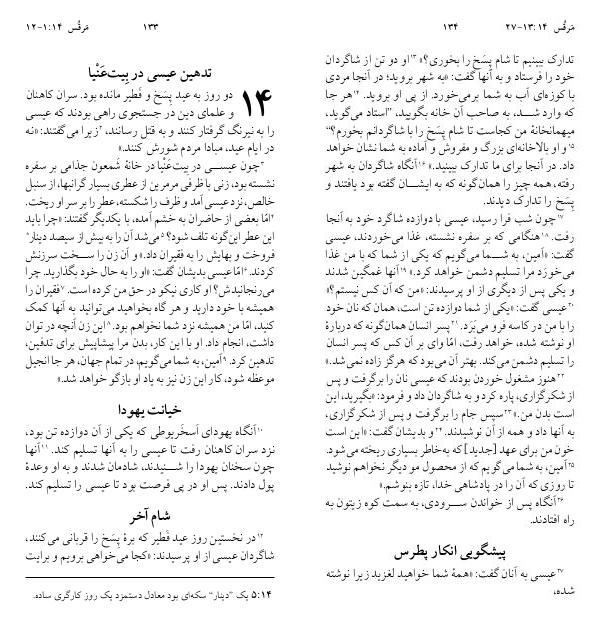 مَرقُس ۱۴:‏۱-‏۱۲
۱۳۳
تدهین عیسی در بِیت‌عَنْیا
۱۴
دو روز به عید پِسَخ و فَطیر مانده بود. سران کاهنان
و علمای دین در جستجوی راهی بودند که عیسی
را به نیرنگ گرفتار کنند و به قتل رسانند، ۲زیرا می‌گفتند: «نه
در ایام عید، مبادا مردم شورش کنند.»
۳چون عیسی در بیت‌عَنْیا در خانهٔ شَمعون جذامی بر سفره
نشسته بود، زنی با ظرفی مرمرین از عطری بسیار گرانبها، از سنبل
خالص، نزد عیسی آمد و ظرف را شکسته، عطر را بر سر او ریخت.
۴امّا بعضی از حاضران به خشم آمده، با یکدیگر گفتند: «چرا باید
این عطر این‌گونه تلف شود؟ ۵می‌شد آن را به بیش از سیصد دینار*
فروخت و بهایش را به فقیران داد.» و آن زن را سخت سرزنش
کردند. ۶امّا عیسی بدیشان گفت: «او را به حال خود بگذارید. چرا
می‌رنجانیدش؟ او کاری نیکو در حق من کرده است. ۷فقیران را
همیشه با خود دارید و هر گاه بخواهید می‌توانید به آنها کمک
کنید، امّا من همیشه نزد شما نخواهم بود. ۸این زن آنچه در توان
داشت، انجام داد. او با این کار، بدن مرا پیشاپیش برای تدفین،
تدهین کرد. ۹آمین، به شما می‌گویم، در تمام جهان، هر جا انجیل
موعظه شود، کار این زن نیز به یاد او بازگو خواهد شد.»
خیانت یهودا
۱۰آنگاه یهودای اَسخَریوطی که یکی از آن دوازده تن بود،
نزد سران کاهنان رفت تا عیسی را به آنها تسلیم کند. ۱۱آنها
چون سخنان یهودا را شنیدند، شادمان شدند و به او وعدهٔ
پول دادند. پس او در پی فرصت بود تا عیسی را تسلیم کند.
شام آخر
۱۲در نخستین روز عید فَطیر که برهٔ پِسَخ را قربانی می‌کنند،
شاگردان عیسی از او پرسیدند: «کجا می‌خواهی برویم و برایت
۵:۱۴ یک "دینار" سکه‌ای بود معادل دستمزد یک روز کارگری ساده.
مَرقُس ۱۴:‏۱۳-‏۲۷
۱۳۴
تدارک ببینیم تا شام پِسَخ را بخوری؟» ۱۳او دو تن از شاگردان
خود را فرستاد و به آنها گفت: «به شهر بروید؛ در آنجا مردی
با کوزه‌ای آب به شما برمی‌خورد. از پی او بروید. ۱۴هر جا
که وارد شد، به صاحب آن خانه بگویید، "استاد می‌گوید،
میهمانخانهٔ من کجاست تا شام پِسَخ را با شاگردانم بخورم؟"
۱۵و او بالاخانه‌ای بزرگ و مفروش و آماده به شما نشان خواهد
داد. در آنجا برای ما تدارک ببینید.» ۱۶آنگاه شاگردان به شهر
رفته، همه چیز را همان‌گونه که به ایشان گفته بود یافتند و
پِسَخ را تدارک دیدند.
۱۷چون شب فرا رسید، عیسی با دوازده شاگرد خود به آنجا
رفت. ۱۸هنگامی که بر سفره نشسته، غذا می‌خوردند، عیسی
گفت: «آمین، به شما می‌گویم که یکی از شما که با من غذا
می‌خورَد مرا تسلیم دشمن خواهد کرد.» ۱۹آنها غمگین شدند
و یکی پس از دیگری از او پرسیدند: «من که آن کس نیستم؟»
۲۰عیسی گفت: «یکی از شما دوازده تن است، همان که نان خود
را با من در کاسه فرو می‌بَرَد. ۲۱پسر انسان همان‌گونه که دربارهٔ
او نوشته شده، خواهد رفت، امّا وای بر آن کس که پسر انسان
را تسلیم دشمن می‌کند. بهتر آن می‌بود که هرگز زاده نمی‌شد.»
۲۲هنوز مشغول خوردن بودند که عیسی نان را برگرفت و پس
از شکرگزاری، پاره کرد و به شاگردان داد و فرمود: «بگیرید، این
است بدن من.» ۲۳سپس جام را برگرفت و پس از شکرگزاری،
به آنها داد و همه از آن نوشیدند. ۲۴و بدیشان گفت: «این است
خون من برای عهد [جدید] که به‌خاطر بسیاری ریخته می‌شود.
۲۵آمین، به شما می‌گویم که از محصول مو دیگر نخواهم نوشید
تا روزی که آن را در پادشاهی خدا، تازه بنوشم.»
۲۶آنگاه پس از خواندن سرودی، به سمت کوه زیتون به
راه افتادند.
پیشگویی انکار پطرس
۲۷عیسی به آنان گفت: «همهٔ شما خواهید لغزید زیرا نوشته
شده،